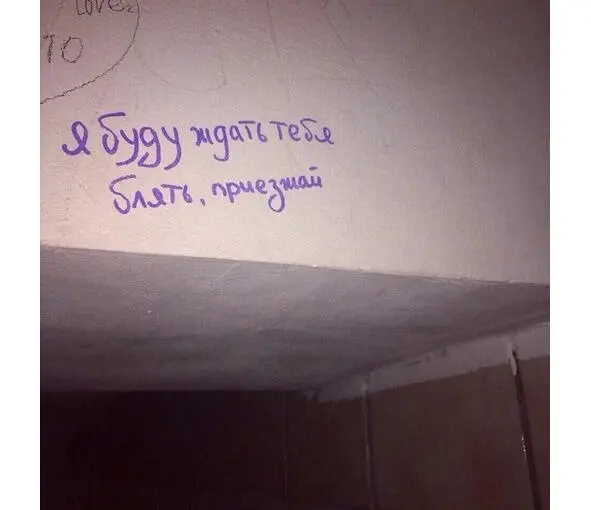 Love
то
я буду ждать тебя
блять, приезжай